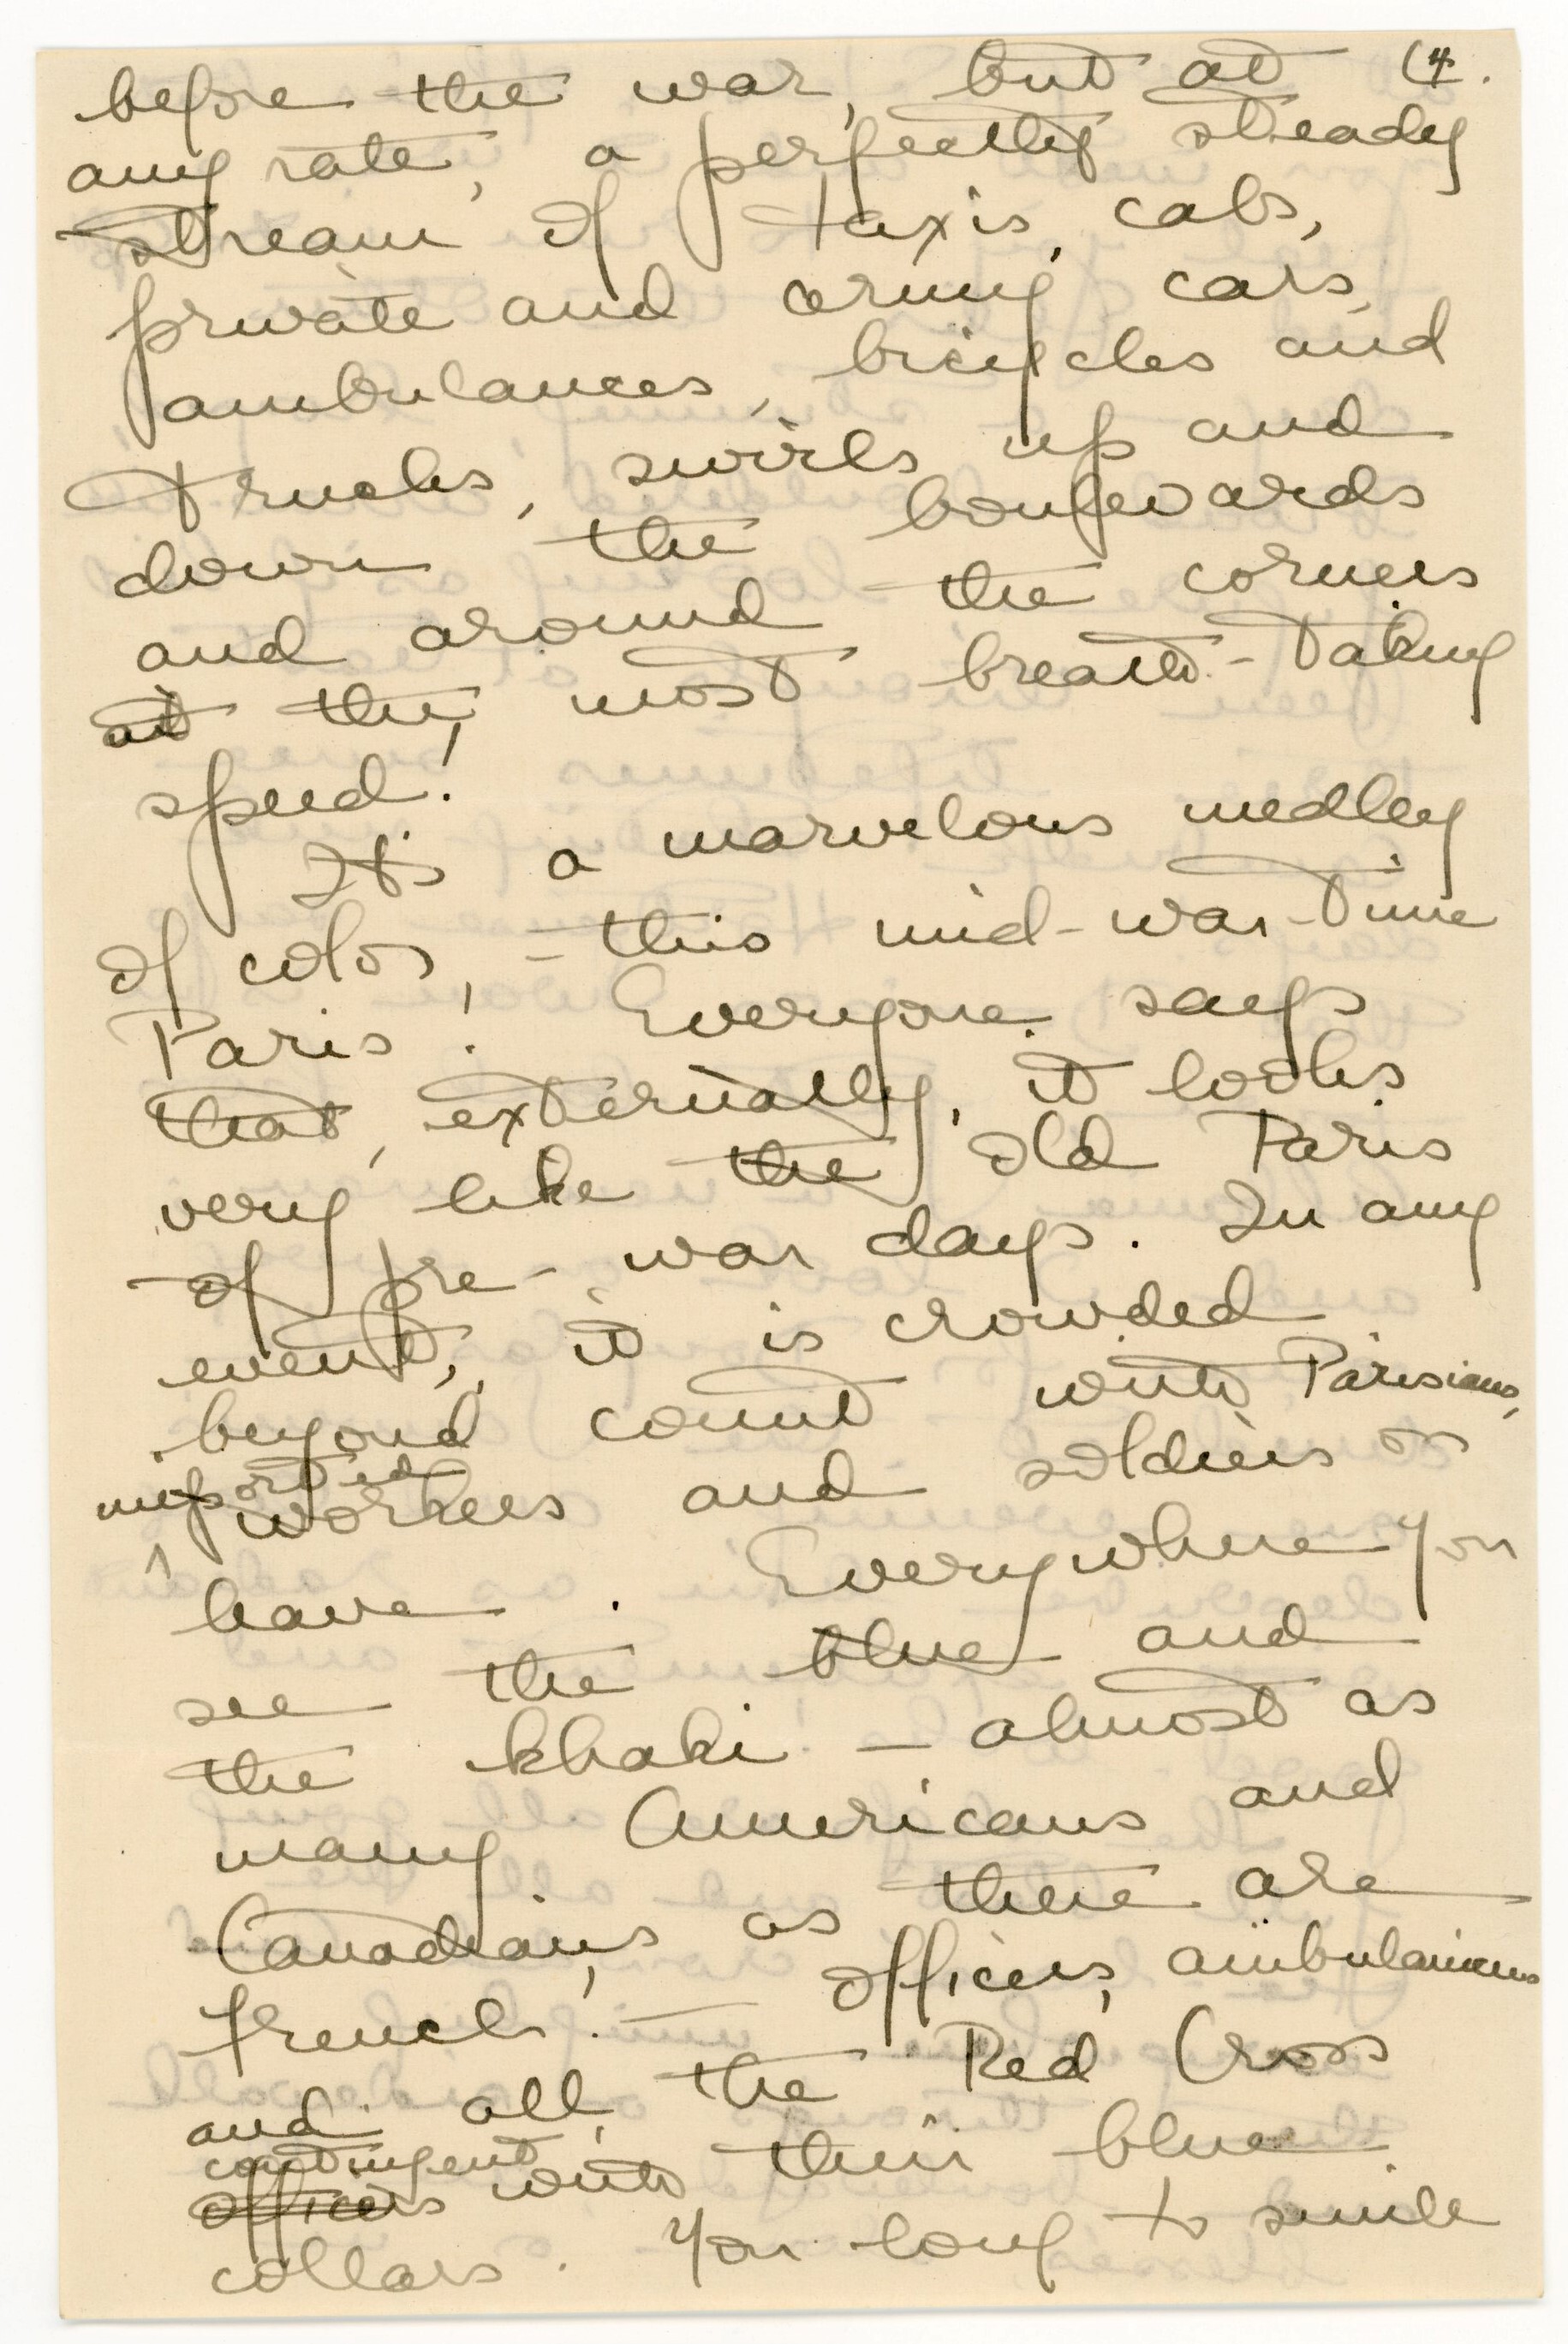 before the war, but at (4.
any rate, a perfectly steady
stream of taxis, cabs,
private and army cars,
ambulances, bicycles and
trucks, swirls up and
down the boulevards
and around the corners
at the most breath-taking
speed!
It's a marvelous medley
of color, - this mid-war-time
Paris! Everyone says
that, externally, it looks
very like the old Paris
of pre-war days. In any
event, it is crowded
beyond count with Parisians,
imported
workers and soldiers on
leave. Everywhere you
see the blue and
the khaki - almost as
many Americans and
Canadians, as there are
French! - officers, ambulanciers
and all the Red Cross
contingent
officers with their blue
collars. You long to smile